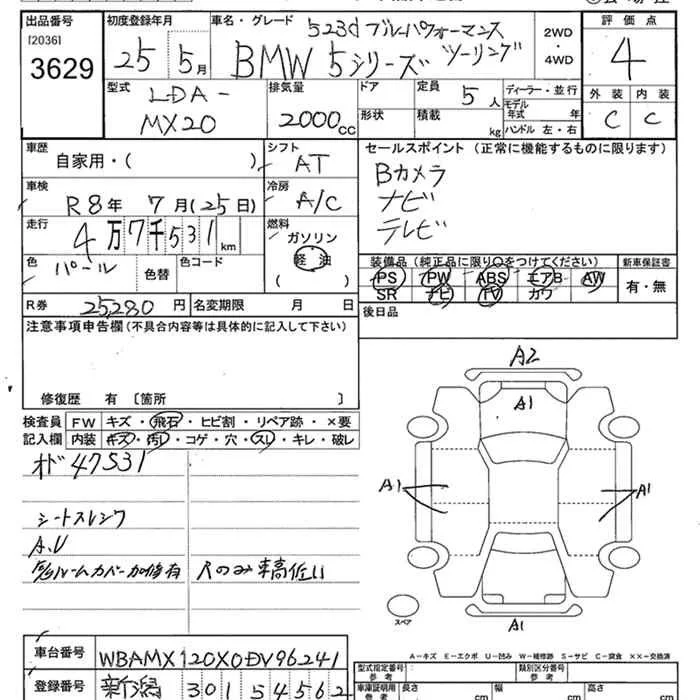 出品番号 初度登録年月 車名・グレード 評価点
[2036] 3629
25 5月
523d ブルーパフォーマンス
BMW 5シリーズ ツーリング
2WD・4WD
4
型式 LDA-MX20
排気量 2000cc
ドア 定員 5人
形状 積載 kg
ディーラー・並行
モデル年式 年
ハンドル 左・右
外装 内装
C C
車歴 自家用・( )
シフト AT
セールスポイント (正常に機能するものに限ります)
Bカメラ
ナビ
テレビ
車検 R8年 7月(25日)
冷房 A/C
走行 4万7千531km
燃料 ガソリン
軽油
( )
色 パール 色替 色コード
装備品(純正品に限り○をつけてください) 新車保証書
PS PW ABS エアB AW 有・無
SR ナビ TV カワ
R券 25,280円 名変期限 月 日
後日品
注意事項申告欄(不具合内容等は具体的に記入して下さい)
修復歴 有 〔箇所 〕
検査員記入欄
FW キズ・飛石・ヒビ割・リペア跡・×要
内装 キズ・汚レ・コゲ・穴・スレ・キレ・破レ
オド 47531
シートスレシワ
A.U
ルームカバー加修有
Rのみ車高低い
A2
A1
A1
A1
A1
スペア
A-キズ E-エクボ U-凹み W-補修跡 S-サビ C-腐食 XX-交換済
車台番号 WBAMX120X0DV96241
登録番号 新潟 301 5 4562
型式指定番号 参考
類別区分番号 参考
車庫証明用 参考
長さ cm 幅 cm 高さ cm